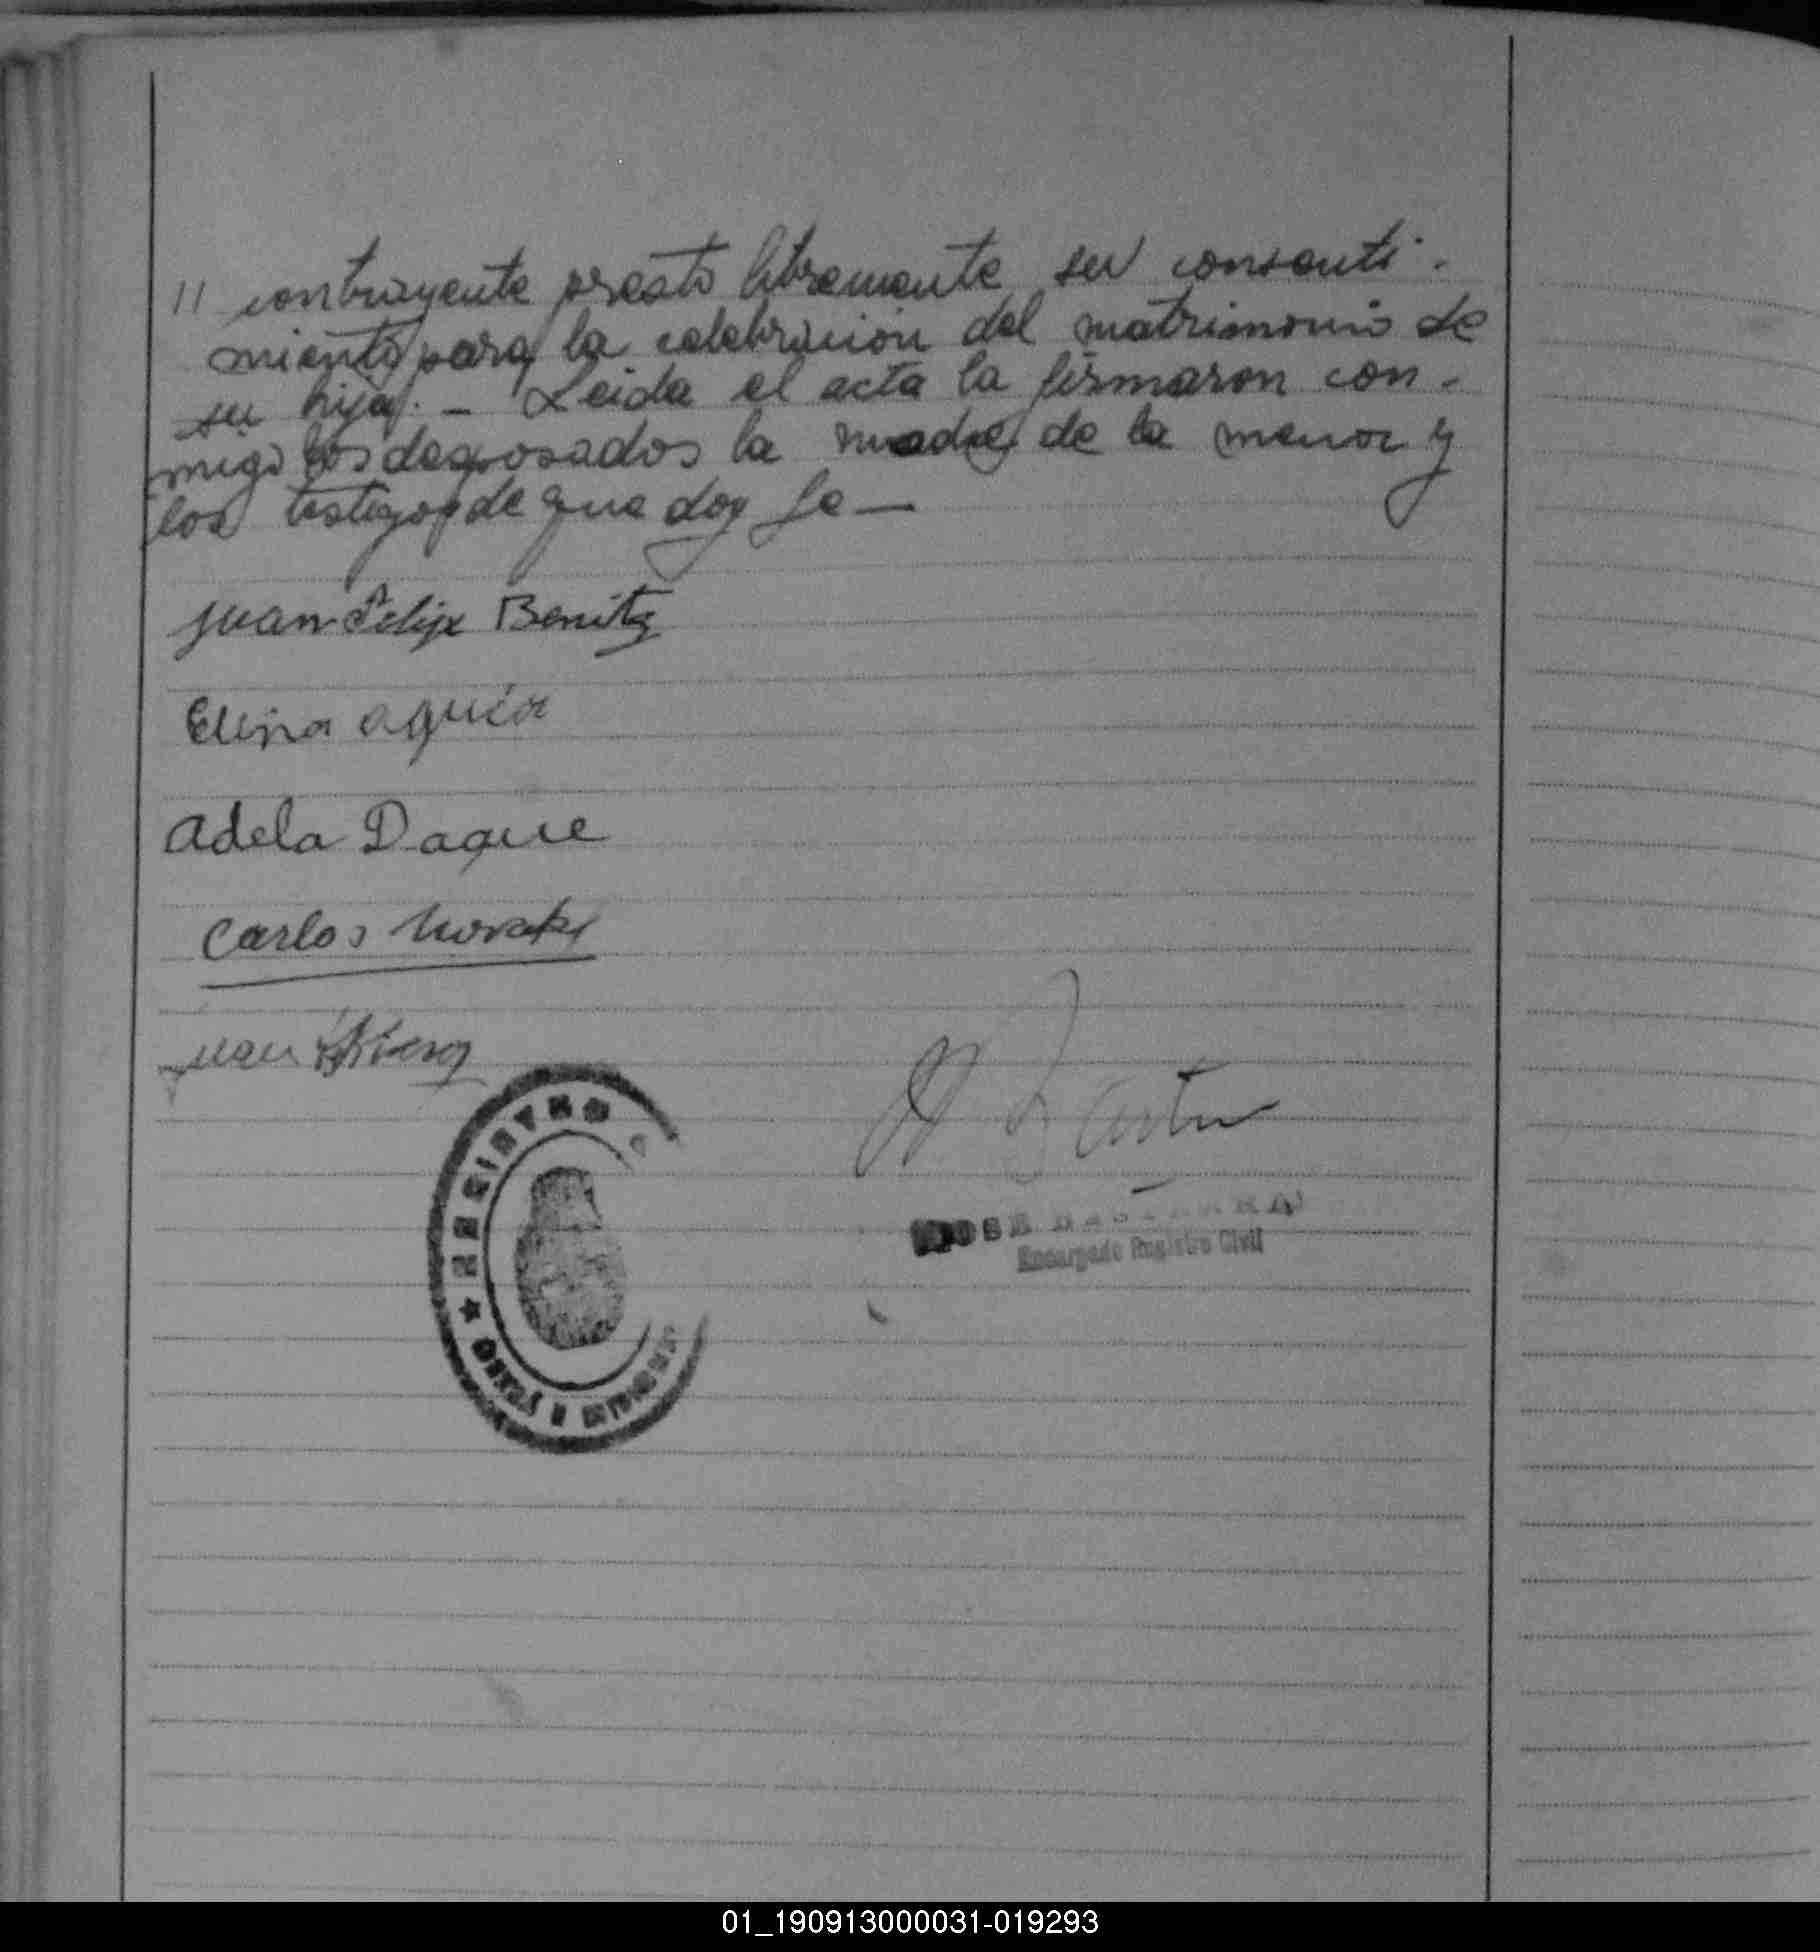 // contrayente prestó libremente su consenti-
miento para la celebración del matrimonio de
su hija. - Leida el acta la firmaron con-
migo los desposados la madre de la menor y
los testigos de que doy fe —
Juan Felipe Benitz
Elina aguia
Adela Daque
Carlos
Juan
REGISTRO
JOSE
Encargado Registro Civil
01_190913000031-019293